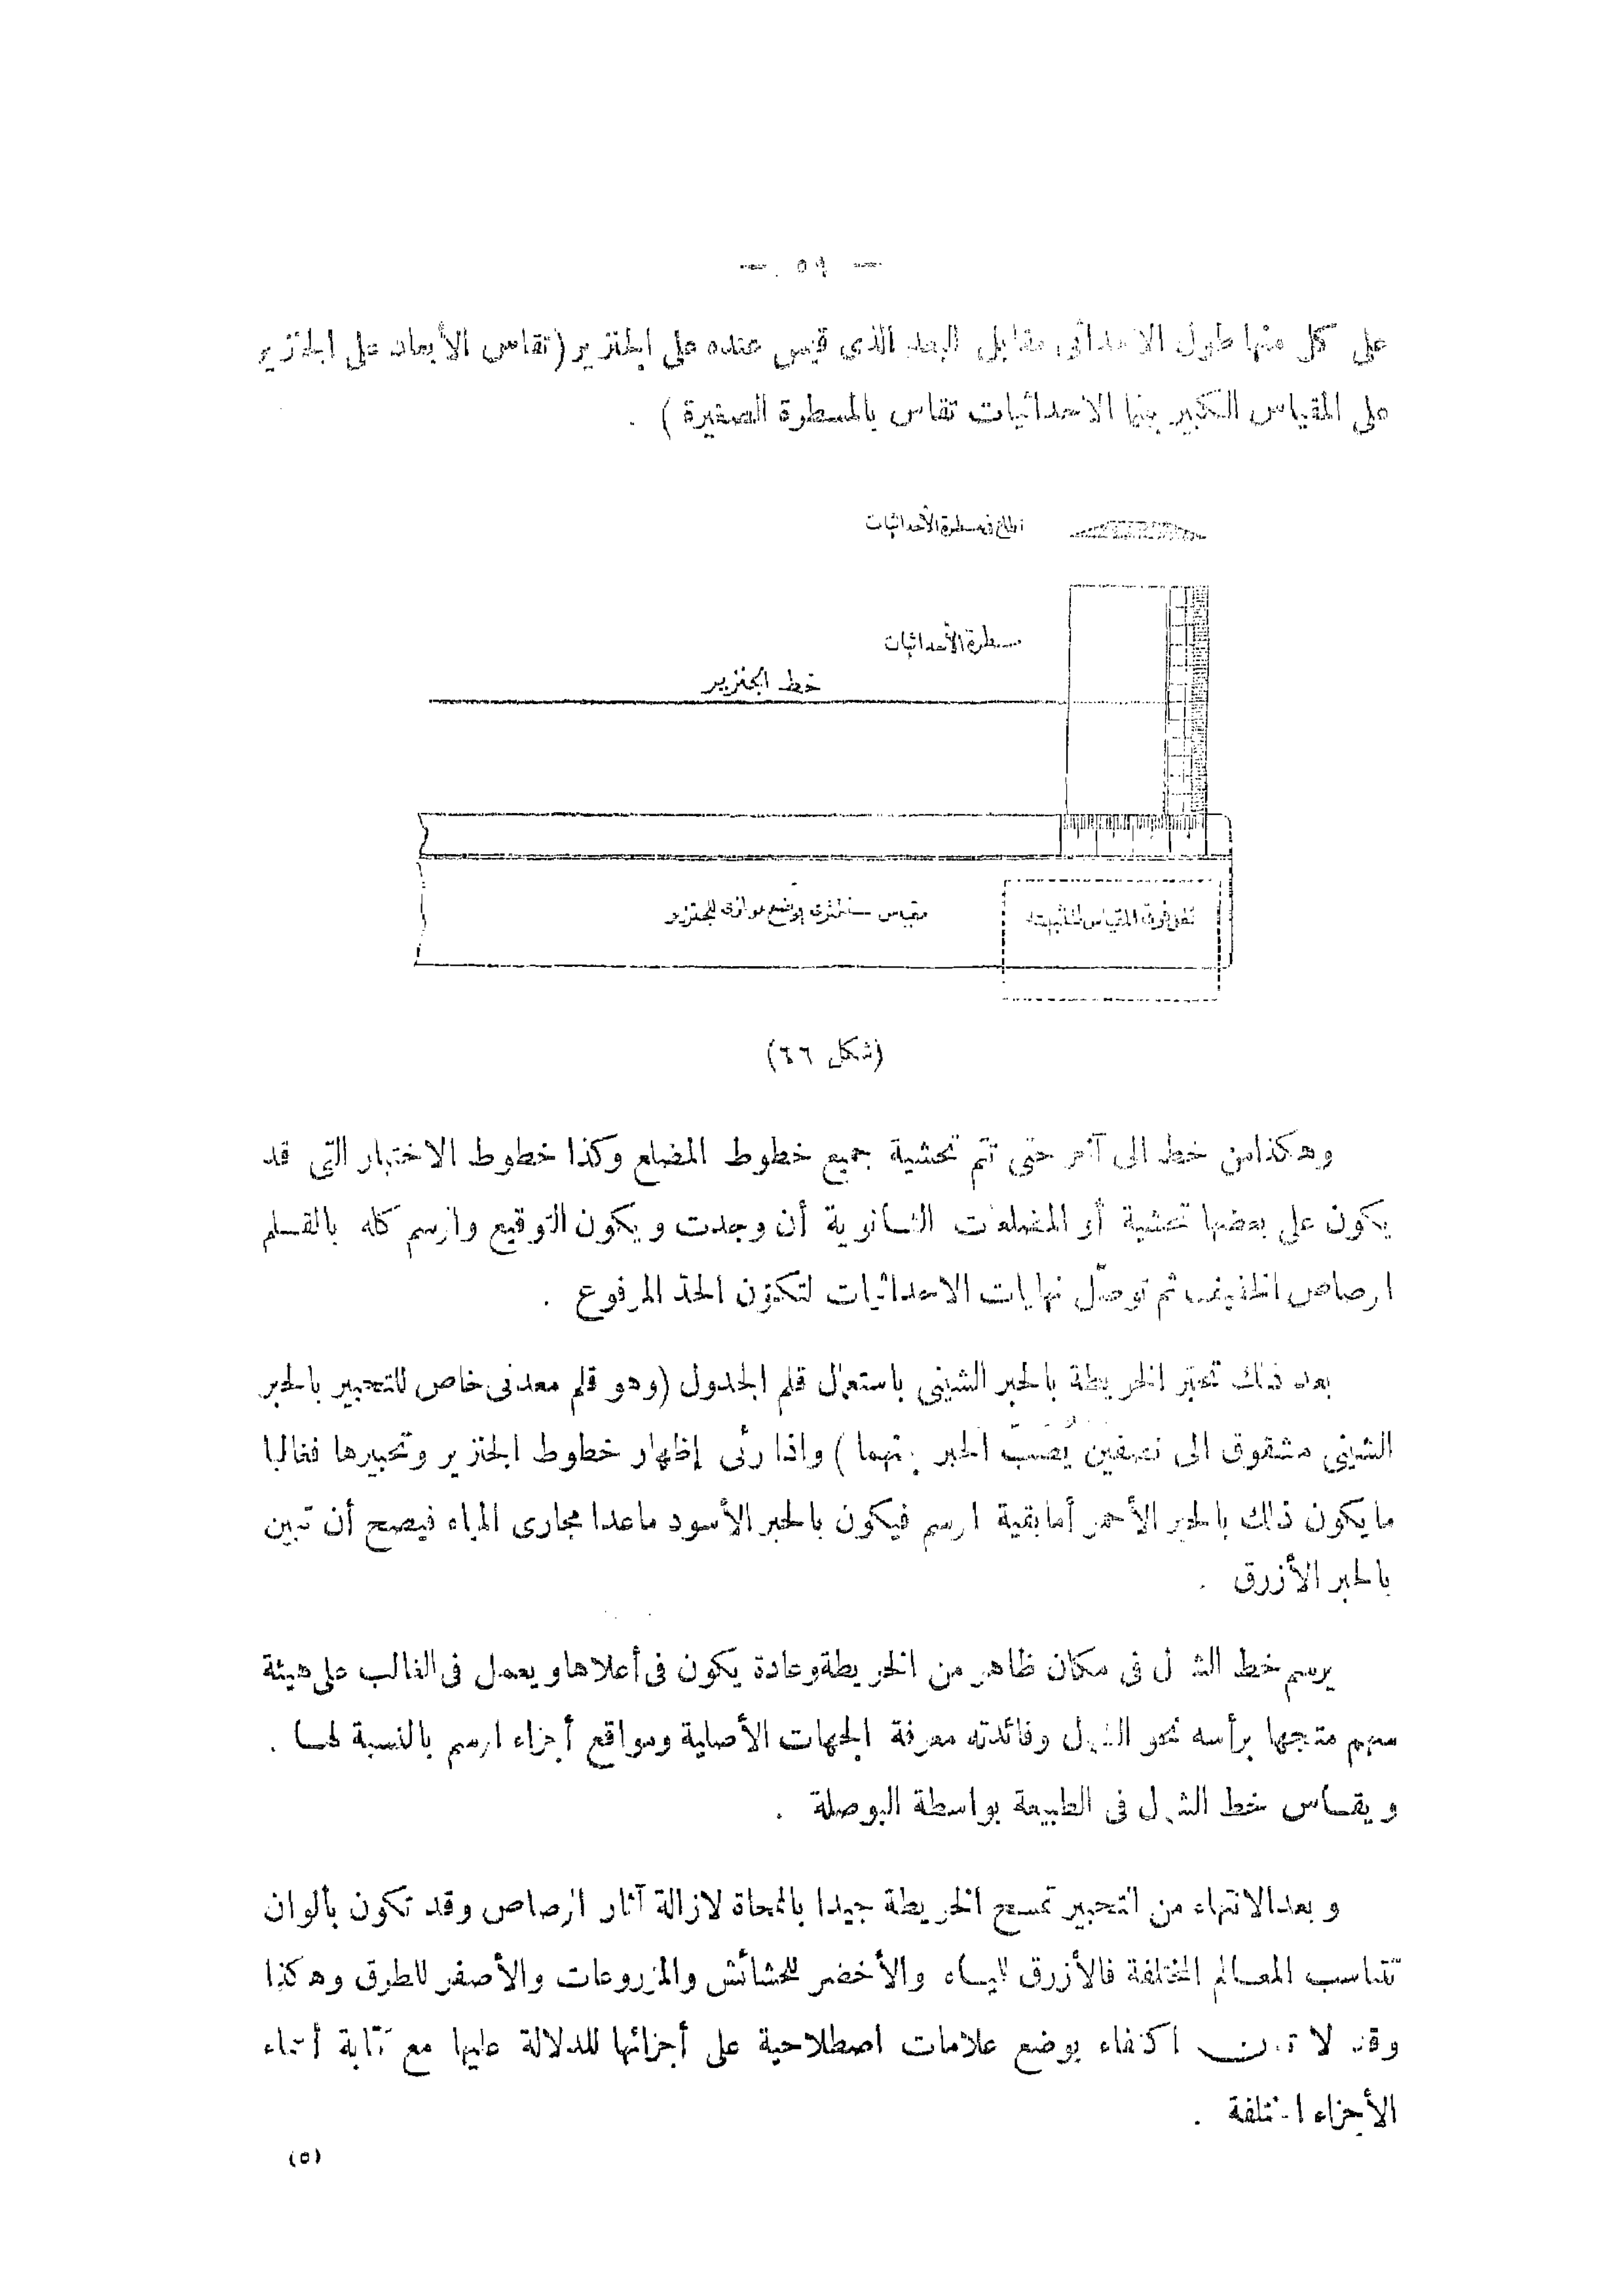 — ٥٩ —
على كل منها طول الاحداثى مقابل البعد الذى قيس عنده على الجنزير (تقاس الأبعاد على الجنزير
على المقياس الكبير بينما الاحداثيات تقاس بالمسطرة الصغيرة) .
مسطرة الأحداثيات
مسطرة الأحداثيات
خط الجنزير
مقياس سنتمترى يوضع موازى للجنزير
ثقل فوق المقياس لتثبيته
(شكل ٦٦)
وهكذا من خط الى آخر حتى تتم تحشية جميع خطوط المضلع وكذا خطوط الاختبار التى قد
يكون على بعضها تحشية أو المضلعات الثانوية أن وجدت ويكون التوقيع والرسم كله بالقلم
الرصاص الخفيف ثم توصّل نهايات الاحداثيات لتكوّن الحدّ المرفوع .
بعد ذلك تحبّر الخريطة بالحبر الشينى باستعمال قلم الجدول (وهو قلم معدنى خاص للتحبير بالحبر
الشينى مشقوق الى نصفين يُصَبّ الحبر بينهما) واذا رئى إظهار خطوط الجنزير وتحبيرها فغالبا
ما يكون ذلك بالحبر الأحمر أما بقية الرسم فيكون بالحبر الأسود ماعدا مجارى المياه فيصح أن تبين
بالحبر الأزرق .
يرسم خط الشمال فى مكان ظاهر من الخريطة وعادة يكون فى أعلاها ويعمل فى الغالب على هيئة
سهم متجها برأسه نحو الشمال وفائدته معرفة الجهات الأصلية ومواقع أجزاء الرسم بالنسبة لها .
ويقاس خط الشمال فى الطبيعة بواسطة البوصلة .
وبعد الانتهاء من التحبير تمسح الخريطة جيدا بالممحاة لازالة آثار الرصاص وقد تكون بألوان
تناسب المعالم المختلفة فالأزرق للمياه والأخضر للحشائش والمزروعات والأصفر للطرق وهكذا
وقد لا تلون اكتفاء بوضع علامات اصطلاحية على أجزائها للدلالة عليها مع كتابة أسماء
الأجزاء المختلفة .
(٥)